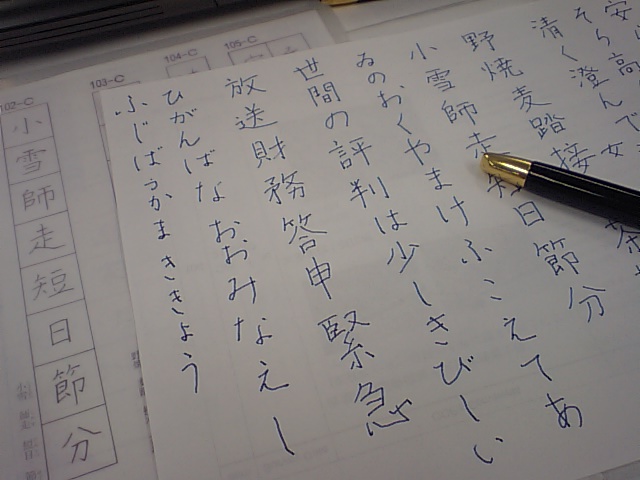 清く澄んで
野焼麦踏接
小雪師走短日節分
ゐのおくやまけふこえてあ
世間の評判は少しきびしい
放送財務答申緊急
ひがんばなおおみなえし
ふじばかまききょう
105-C
104-C
103-C
102-C
小雪師走短日節分